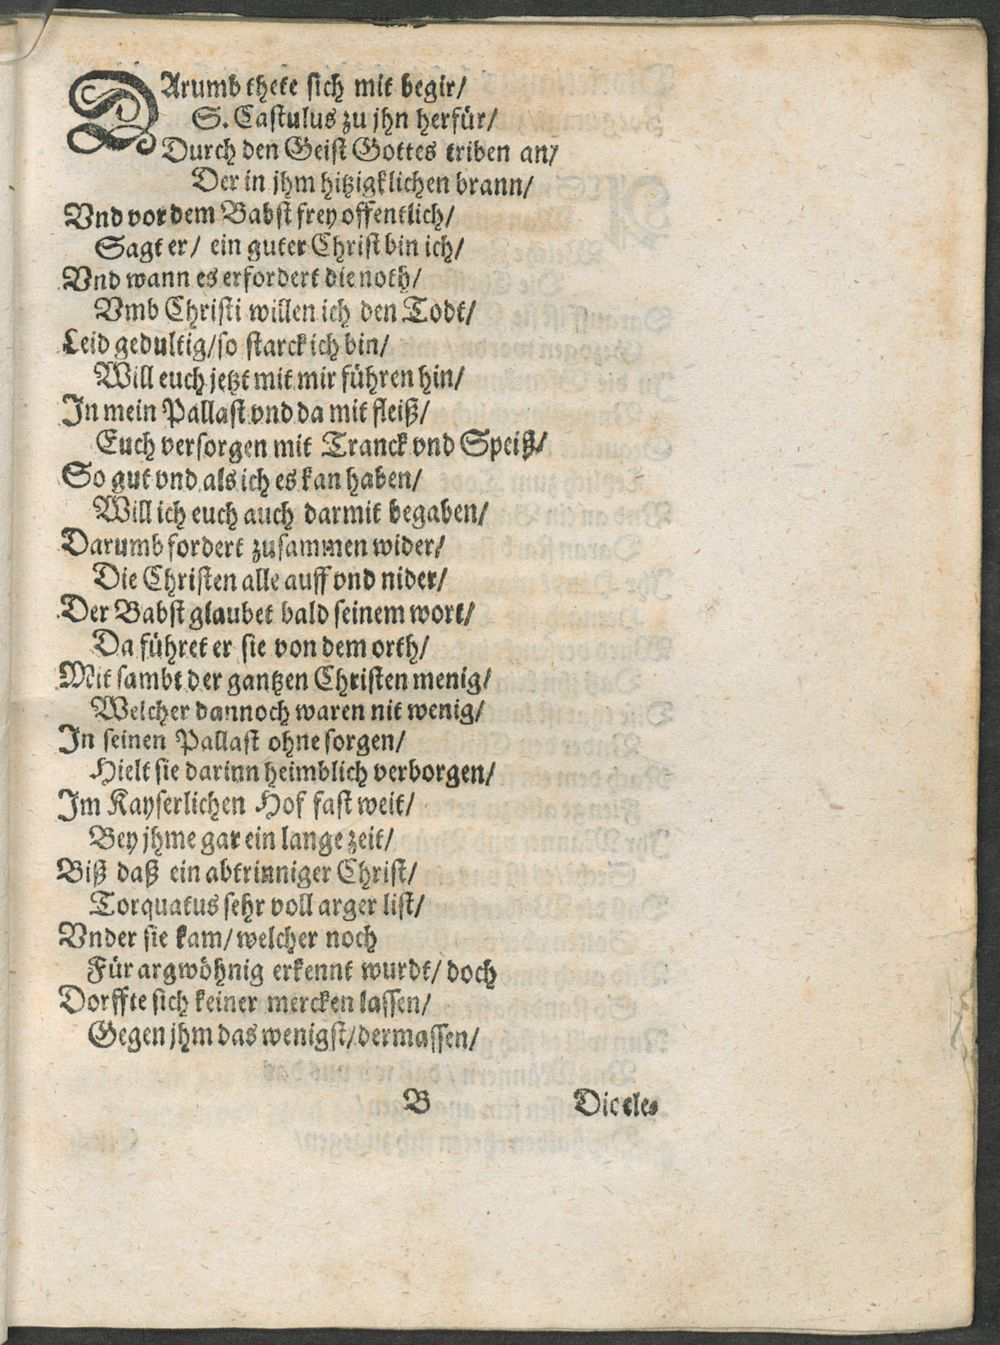 DArumb thete sich mit begir/
S. Castulus zu jhn herfür/
Durch den Geist Gottes triben an/
Der in jhm hitzigklichen brann/
Vnd vor dem Babst frey offentlich/
Sagt er/ ein guter Christ bin ich/
Vnd wann es erfordert die noth/
Vmb Christi willen ich den Todt/
Leid gedultig/so starck ich bin/
Will euch jetzt mit mir führen hin/
In mein Pallast vnd da mit fleiß/
Euch versorgen mit Tranck vnd Speiß/
So gut vnd als ich es kan haben/
Will ich euch auch darmit begaben/
Darumb fordert zusammen wider/
Die Christen alle auff vnd nider/
Der Babst glaubet bald seinem wort/
Da führet er sie von dem orth/
Mit sambt der gantzen Christen menig/
Welcher dannoch waren nit wenig/
In seinen Pallast ohne sorgen/
Hielt sie darinn heimblich verborgen/
Im Kayserlichen Hof fast weit/
Bey jhme gar ein lange zeit/
Biß daß ein abtrinniger Christ/
Torquatus sehr voll arger list/
Vnder sie kam/ welcher noch
Für argwöhnig erkennt wurdt/ doch
Dorffte sich keiner mercken lassen/
Gegen jhm das wenigst/dermassen/
B Diocle-